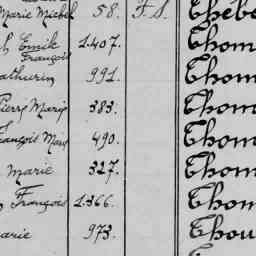 Marie Michel 58. F.S. Thebe
h Emile François 1.407. Thom
athurin 991. Thom
Pierre Marie 383. Thom
François Marie 490. Thom
Marie 327. Thom
François 1.366. Thom
arie 973. Thou